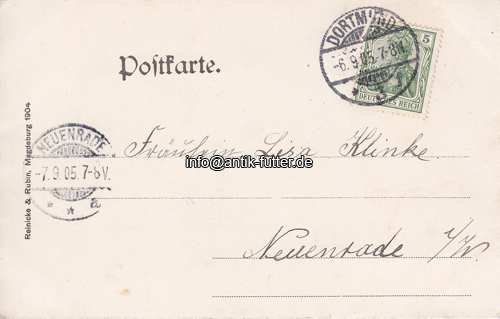 Postkarte.
DORTMUND
-6.9.05.7-8V.
5
DEUTSCHES REICH
NEUENRADE
-7.9.05.7-8V.
* * a
Reinicke & Rubin, Magdeburg 1904
Fräulein Liza Klinke
info@antik-futter.de
Neuenrade i/W